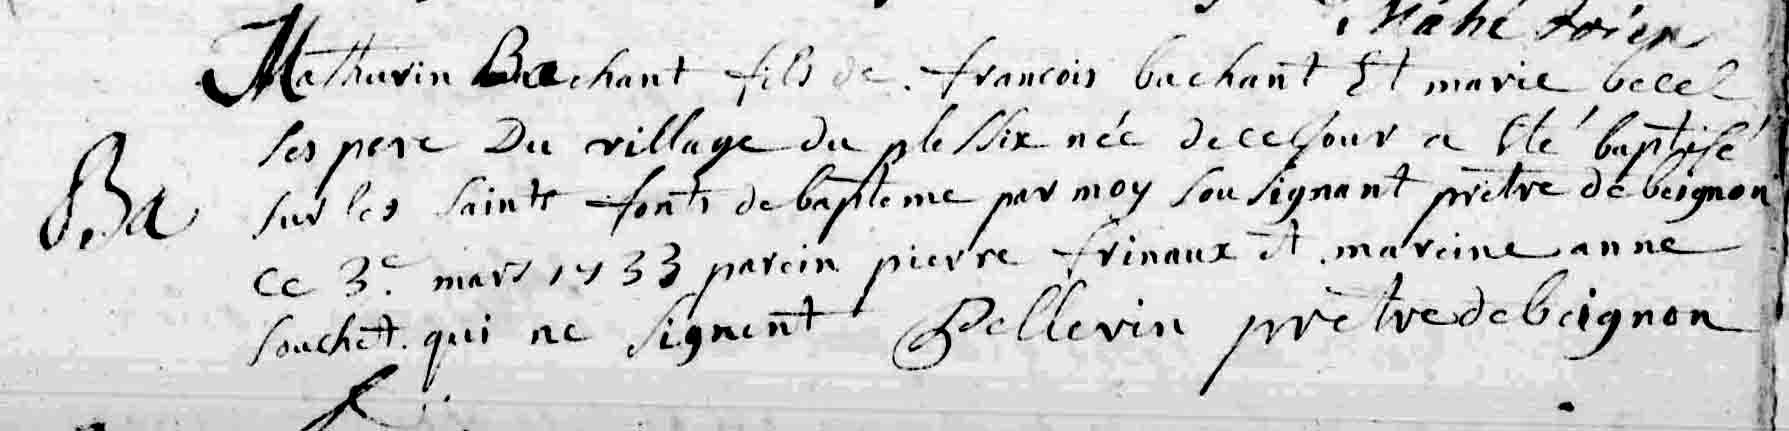 Mahé
Mathurin Bachant fils de francois bachant Et marie becel
ses pere Du village du plessix née de ce Jour a Eté baptisé
Ba
sur les saints fonts de bapteme par moy sousignant prêtre de beignon
ce 3.e mars 1733 parein pierre frinaux et mareine anne
souchet qui ne signent Pellerin prêtre de beignon